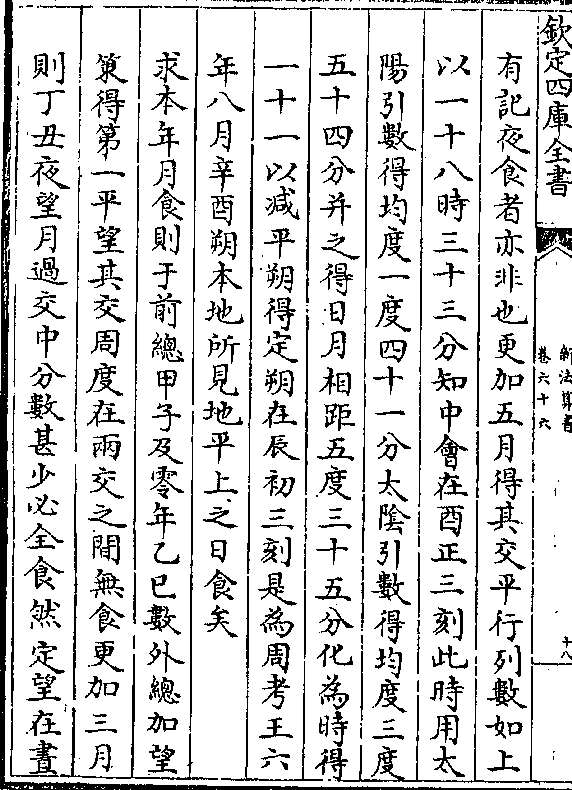 欽定四庫全書
新法算書
卷六十六
十八
有記夜食者亦非也更加五月得其交平行列數如上
以一十八時三十三分知中會在酉正三刻此時用太
陽引數得均度一度四十一分太陰引數得均度三度
五十四分并之得日月相距五度三十五分化為時得
一十一以减平朔得定朔在辰初三刻是為周考王六
年八月辛酉朔本地所見地平上之日食矣
求本年月食則于前總甲子及零年乙巳數外總加望
策得第一平望其交周度在兩交之間無食更加三月
則丁丑夜望月過交中分數甚少必全食然定望在晝